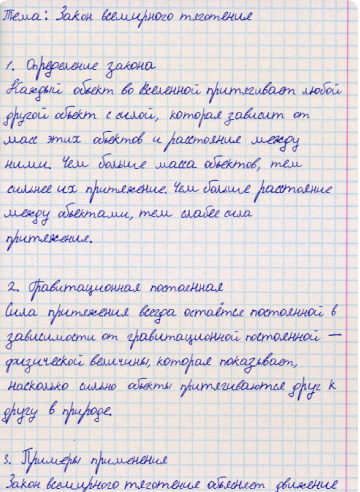 Тема: Закон всемирного тяготения
1. Определение закона
Каждый объект во Вселенной притягивает любой
другой объект с силой, которая зависит от
масс этих объектов и расстояние между
ними. Чем больше масса объектов, тем
сильнее их притяжение. Чем больше расстояние
между объектами, тем слабее сила
притяжение.
2. Гравитационная постоенная
Сила притяжения всегда остаётся постоянной в
зависимости от гравитационной постоянной —
физической величины, которая показывает,
насколько сильно объекты притягиваются друг к
другу в природе.
3. Примеры применения
Закон всемирного тяготение объясняет движение